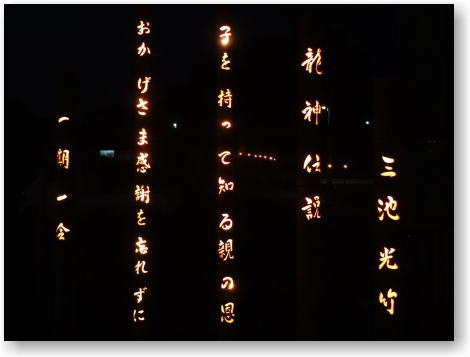 三池光竹
龍神伝説
子を持って知る親の恩
おかげさま感謝を忘れずに
一期一会